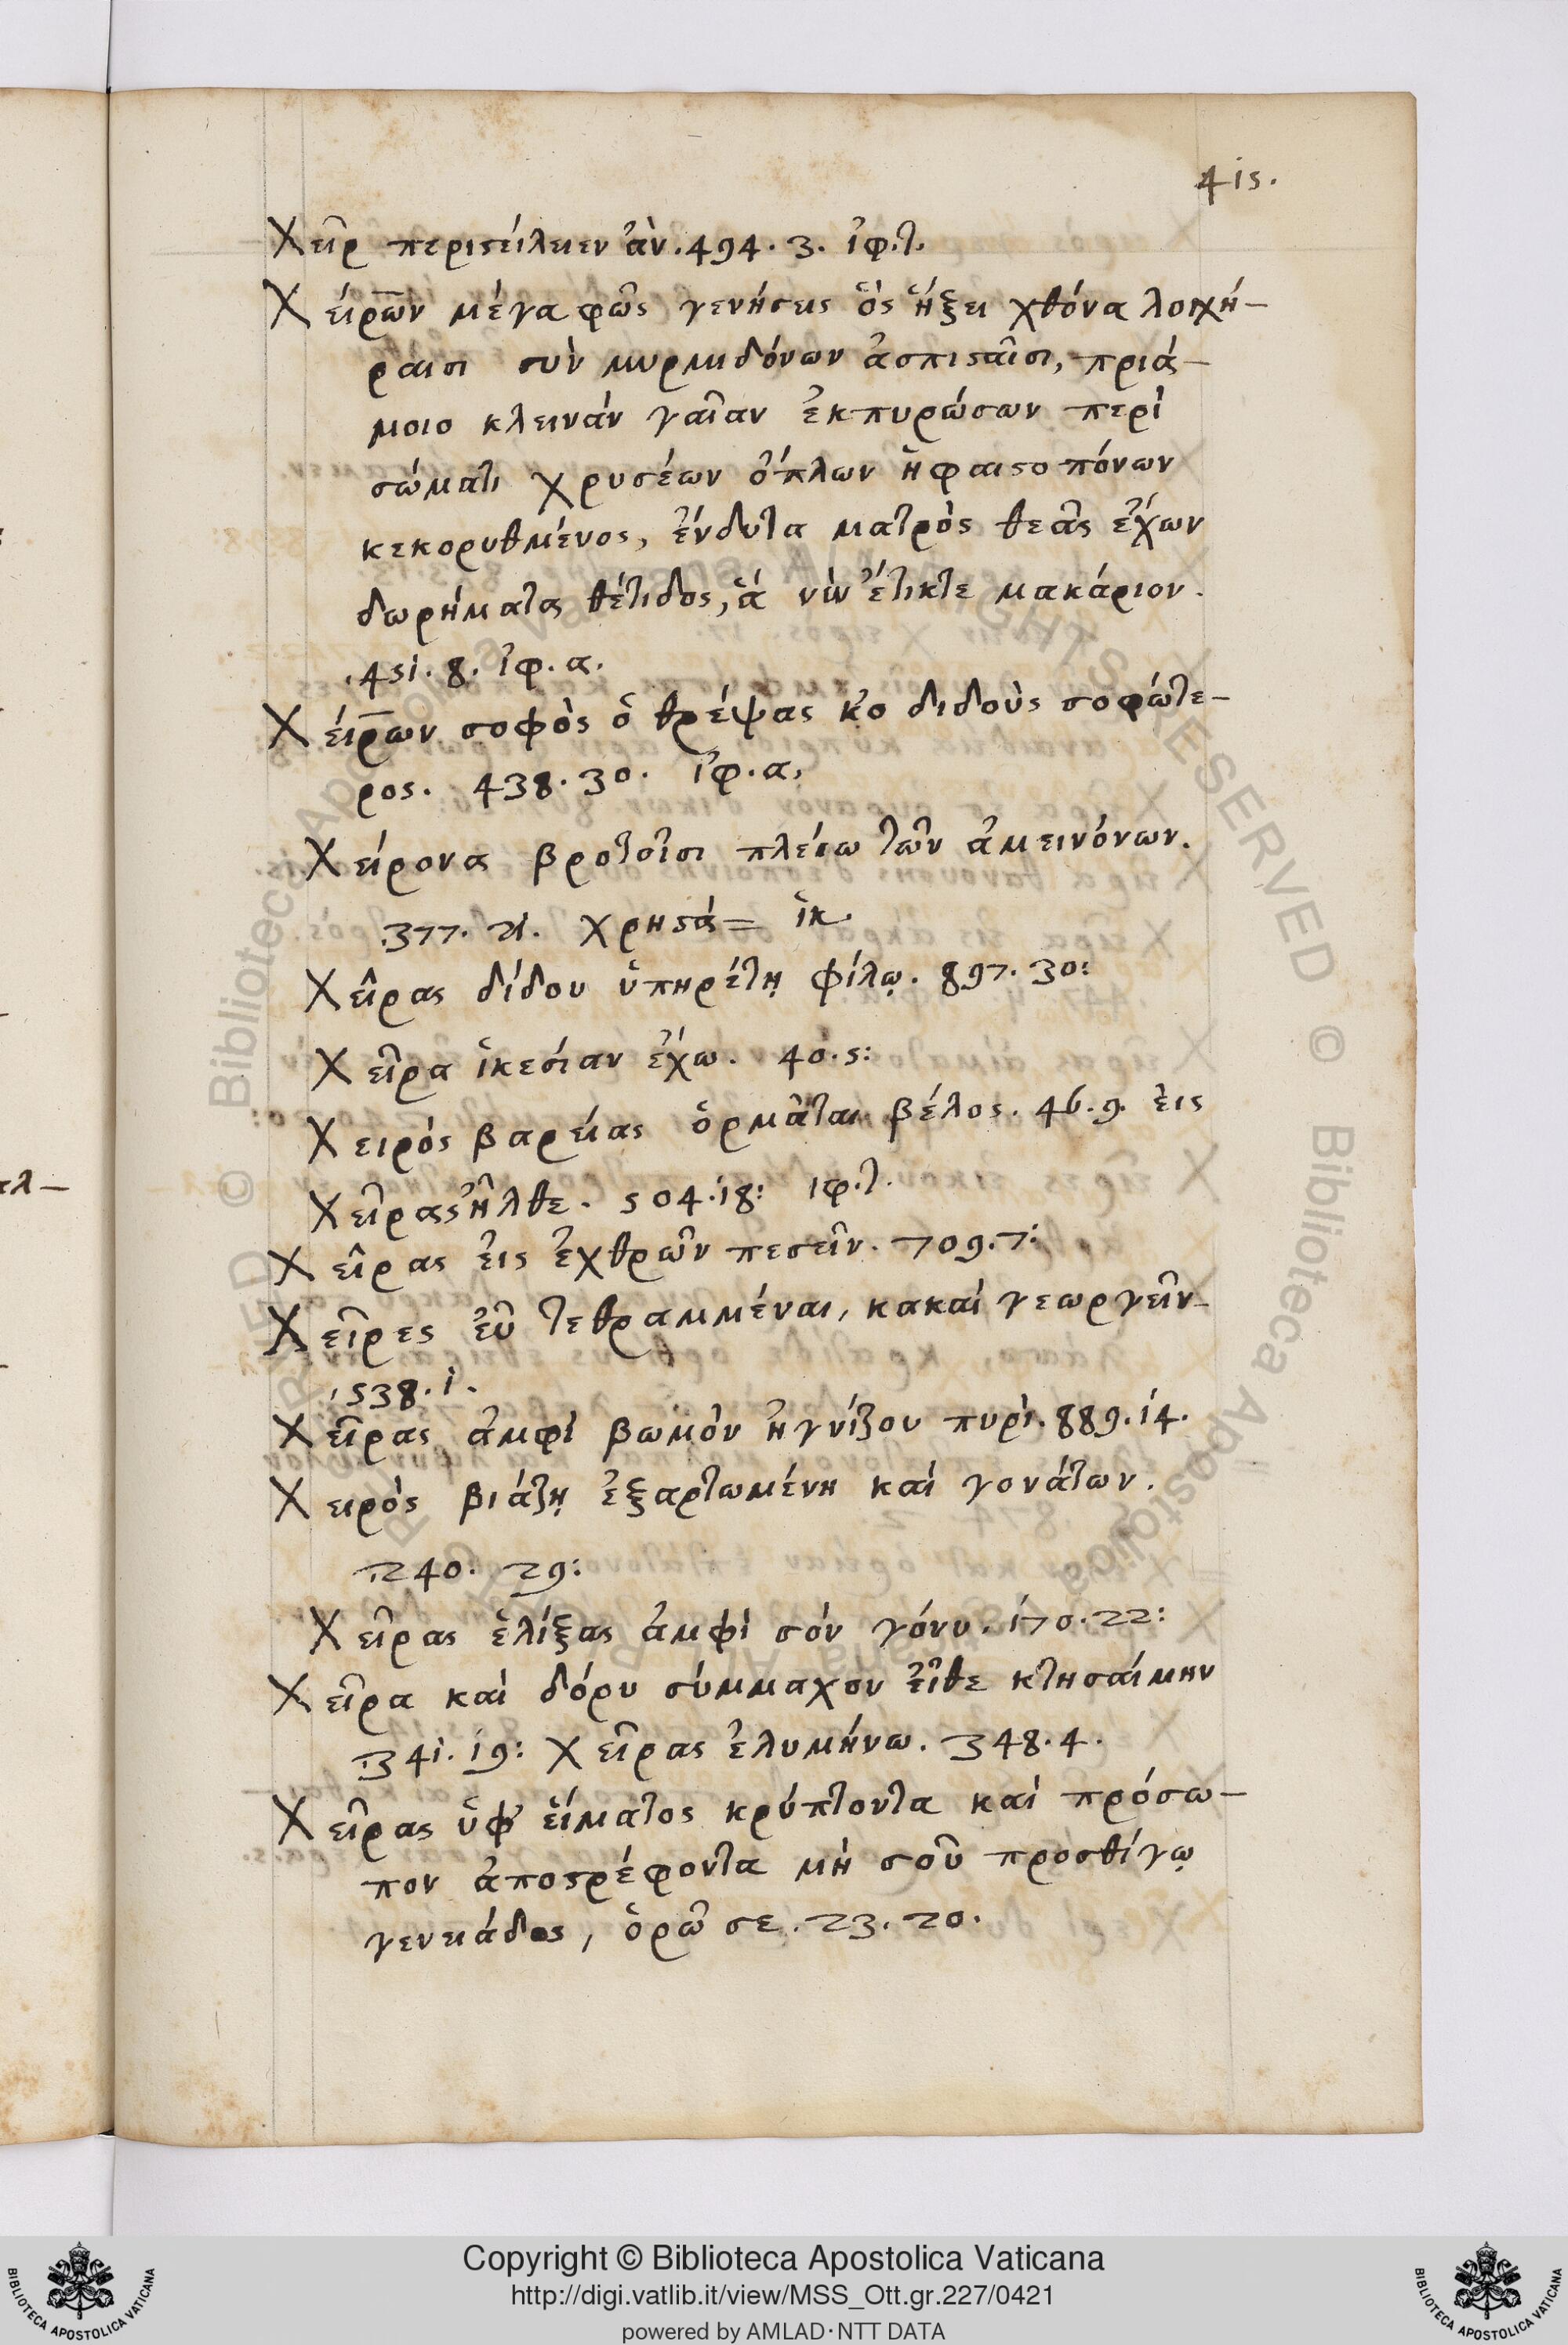 415.
Χεὶρ περιστείλειεν ἂν. 494. 3. ἰφ. τ.
Χείρων μέγα φῶς γενήσεις ὃς ἥξει χθόνα λογχή-
ραισι σὺν μυρμιδόνων ἀσπισταῖσι, πριά-
μοιο κλεινὰν γαῖαν ἐκπυρώσων περὶ
σώματι χρυσέων ὅπλων ἡφαιστοπόνων
κεκορυθμένος, ἔνδυτα ματρὸς θεᾶς ἔχων
δωρήματα θέτιδος, ἅ νιν ἔτικτε μακάριον.
.451. 8. ἰφ. α.
Χείρων σοφὸς ὁ θρέψας κ̓ο διδοὺς σοφώτε-
ρος. 438. 30. ἰφ. α.
Χείρονα βροτοῖσι πλείω τῶν ἀμεινόνων.
.377. 21. χρηστά= ἱκ.
Χεῖρας δίδου ὑπηρέτῃ φίλῳ. 897. 30:
Χεῖρα ἱκεσίαν ἔχω. 40. 5:
Χειρὸς βαρείας ὁρμᾶται βέλος. 46. 9. εἰς
Χεῖρας ἦλθε. 504. 18: ιφ. τ.
Χεῖρας εἰς ἐχθρῶν πεσεῖν. 709. 7:
Χεῖρες εὖ τεθραμμέναι, κακαὶ γεωργεῖν-
.538. 1.
Χεῖρας ἀμφὶ βωμὸν ἡγνίζου πυρί. 889. 14.
Χειρὸς βιάζῃ ἐξαρτωμένη καὶ γονάτων.
.240. 29:
Χεῖρας ἑλίξας ἀμφὶ σὸν γόνυ. 170. 22:
Χεῖρα καὶ δόρυ σύμμαχον εἴθε κτησαίμην
.341. 19: Χεῖρας ἐλυμήνω. 348. 4.
Χεῖρας ὑφ' εἵματος κρύπτοντα καὶ πρόσω-
πον ἀποστρέφοντα μὴ σοῦ προσθίγω
γενειάδος, ὁρῶ σε. 23. 20.
αλ-
Copyright © Biblioteca Apostolica Vaticana
http://digi.vatlib.it/view/MSS_Ott.gr.227/0421
powered by AMLAD·NTT DATA
BIBLIOTECA APOSTOLICA VATICANA
BIBLIOTECA APOSTOLICA VATICANA